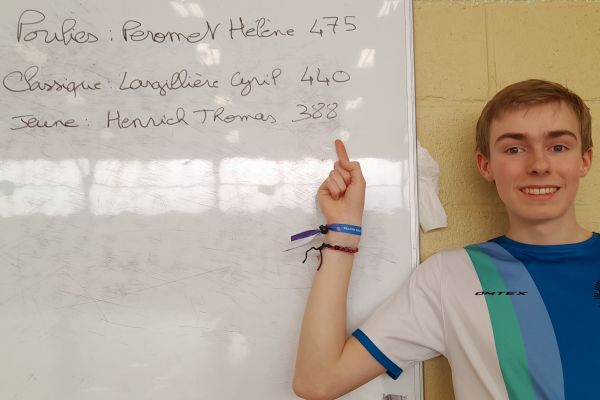 Poulies : Peromet Hélène 475
Classique : Largillière Cyril 440
Jeune : Henrich Thomas 388
OMTEX